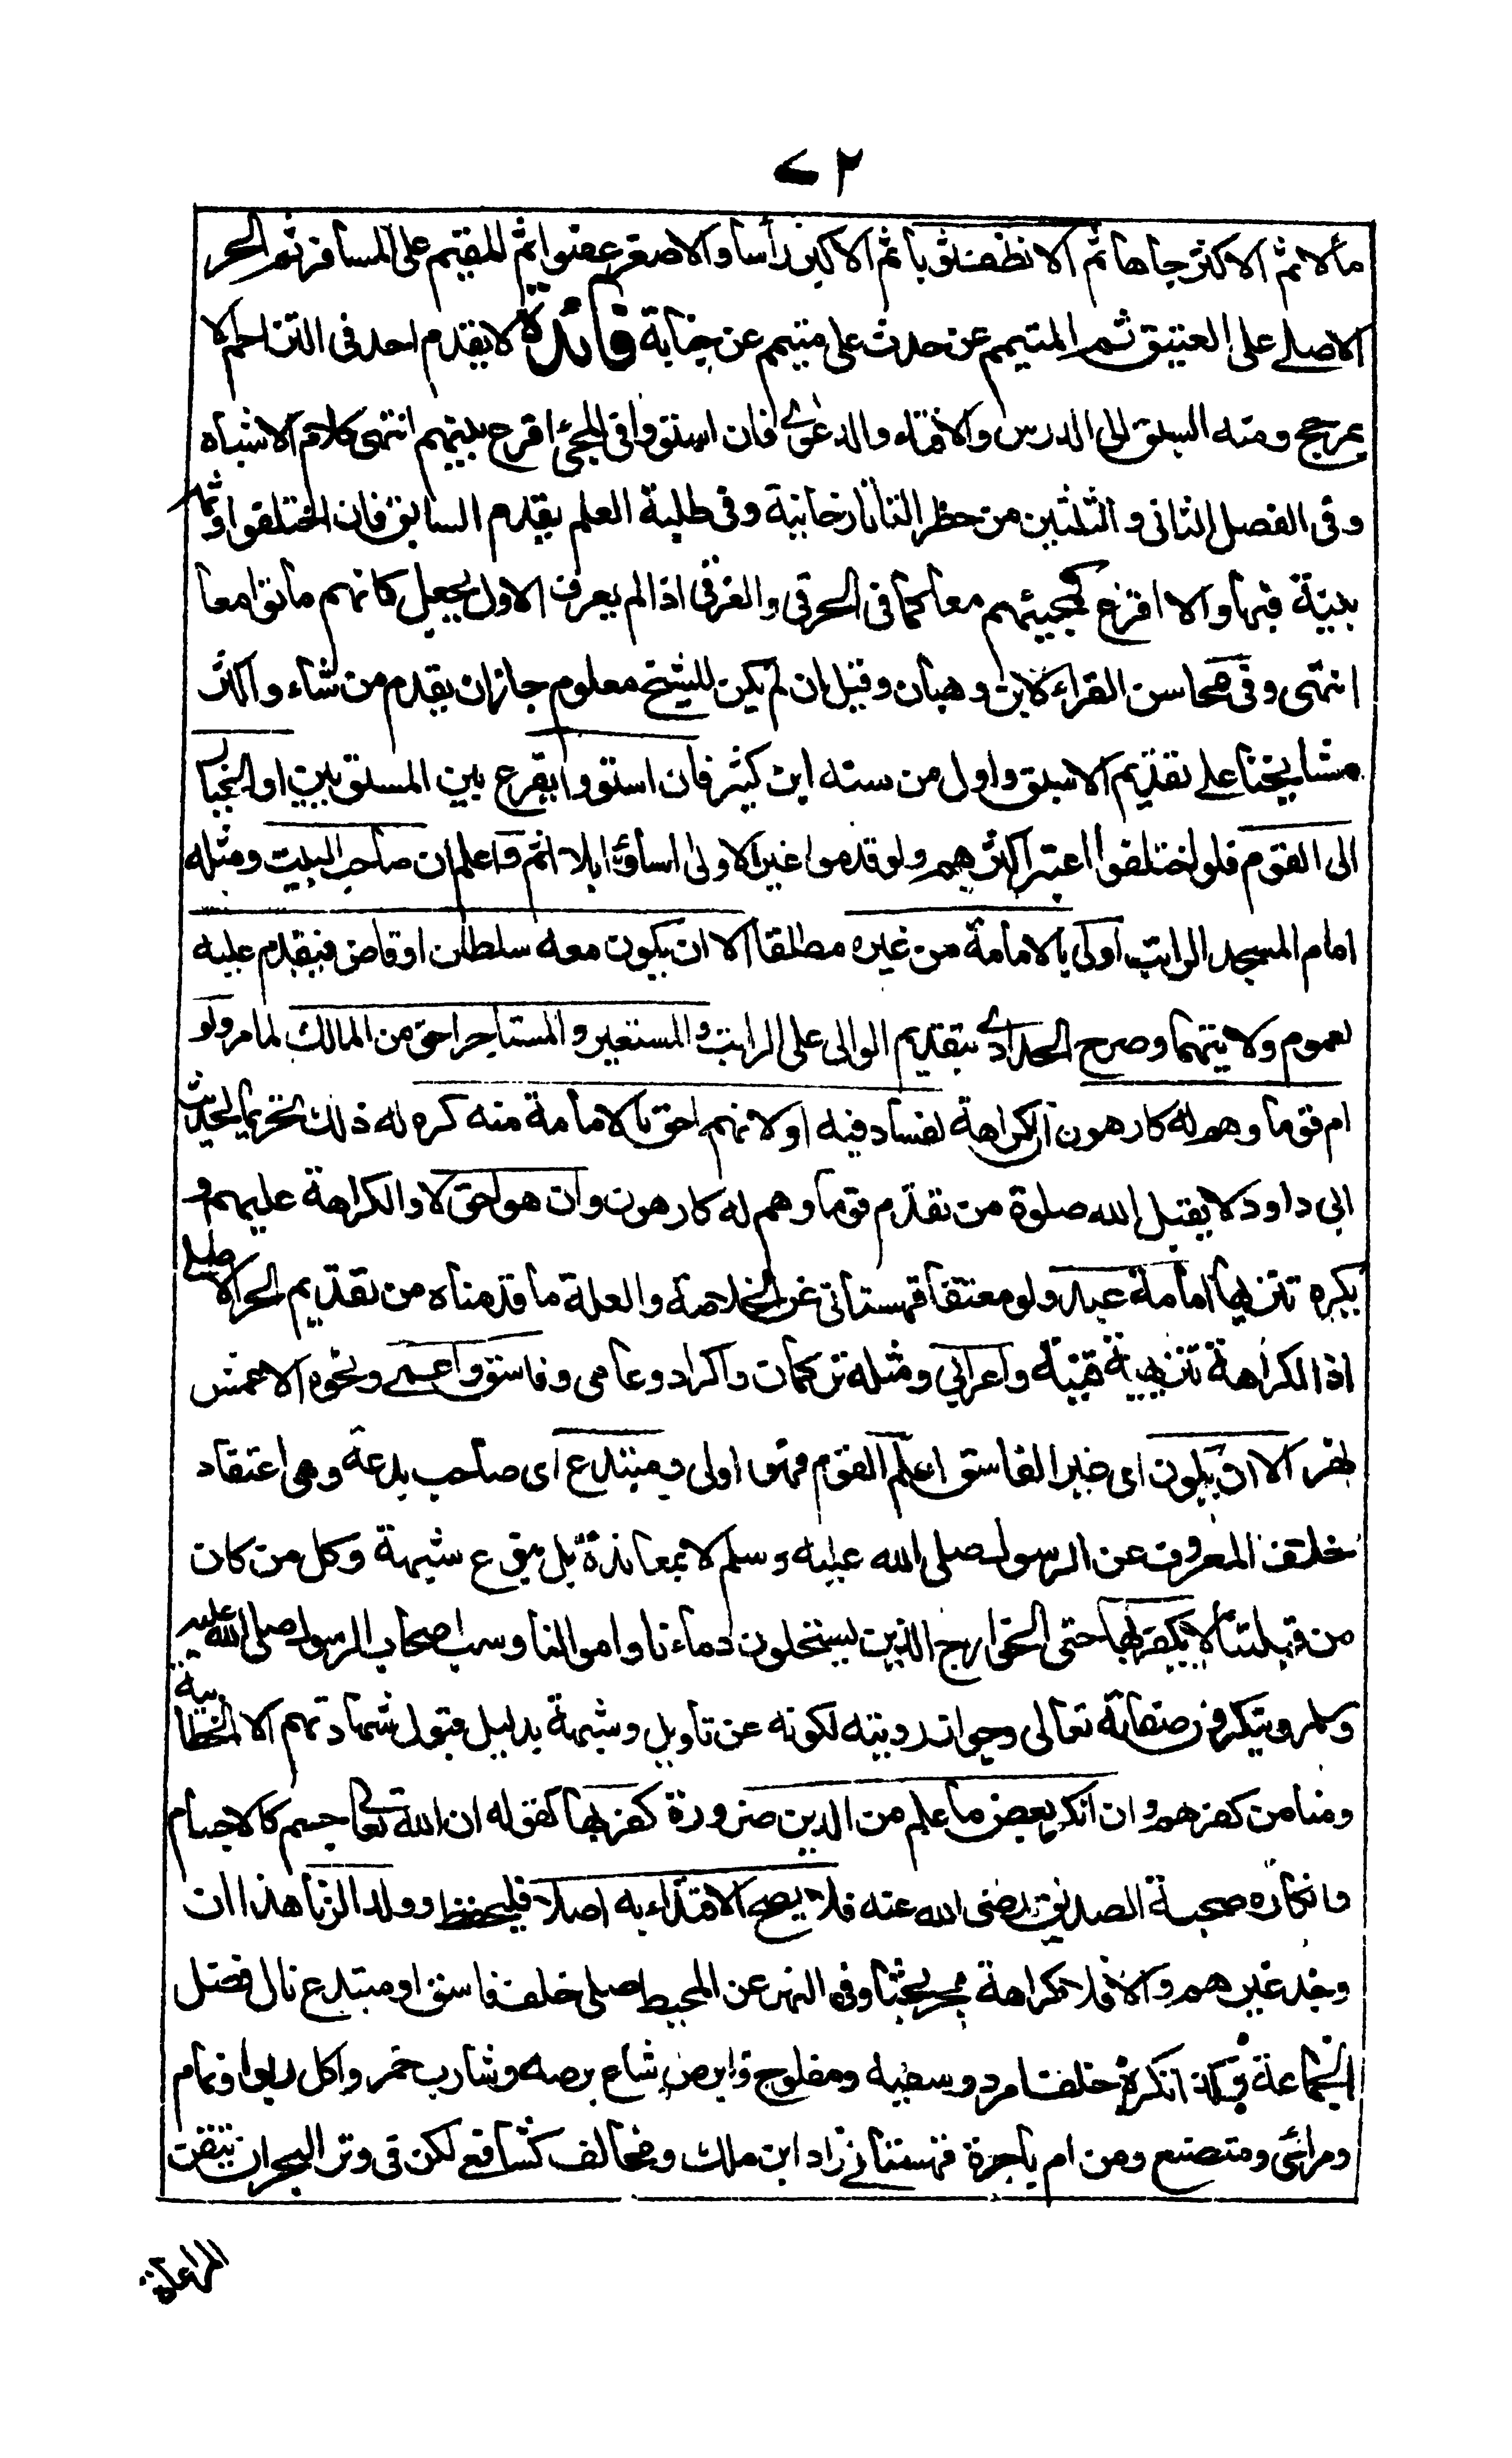 ٧٢
مالا ثم الاكثر جاها ثم الانظف ثوبا ثم الاكبر رأسا والاصغر عضوا ثم المقيم على المسافر ثم الحر
الاصلي على العتيق ثم المتيمم عن حدث على متيمم عن جنابة فائدة لا يقدم احد في التزاحم الا
بمرجح ومنه السبق الى الدرس والافتاء والدعوى فان استووا في المجئ اقرع بينهم انتهى كلام الاشباه
وفي الفصل الثاني والثلثين من حظر التاتارخانية وفي طلبة العلم يقدم السابق فان اختلفوا وثمه
بينة فبها والا اقرع كمجيئهم معا كما في الحرقى والغرقى اذا لم يعرف الاول يجعل كانهم ماتوا معا
انتهى وفي محاسن القراء لابن وهبان وقيل ان لم يكن للشيخ معلوم جاز ان يقدم من شاء واكثر
مشايخنا على تقديم الاسبق واول من سنه ابن كثير فان استووا يقرع بين المستويين او الخيار
الى القوم فلو اختلفوا اعتبر اكثرهم ولو قدموا غير الاولى اساؤا بلا اثم واعلم ان صاحب البيت ومثله
امام المسجد الراتب اولى بالامامة من غيره مطلقا الا ان يكون معه سلطان او قاض فيقدم عليه
لعموم ولايتهما وصرح الحدادي بتقديم الوالي على الراتب والمستعير والمستاجر احق من المالك لما مر ولو
ام قوما وهم له كارهون ان الكراهة لفساد فيه او لانهم احق بالامامة منه كره له ذلك تحريما لحديث
ابي داود لا يقبل الله صلوة من تقدم قوما وهم له كارهون وان هو احق لا والكراهة عليهم و
يكره تنزيها امامة عبد ولو معتقا قهستاني عن الخلاصة والعلة ما قدمناه من تقديم الحر الاصلي
اذ الكراهة تنزيهية فتنبه واعرابي ومثله تركمان واكراد وعامى وفاسق واعمى ونحوه الاعمش
نهر الا ان يكون اى غير الفاسق اعلم القوم فهو اولى ومبتدع اى صاحب بدعة وهى اعتقاد
خلاف المعروف عن الرسول صلى الله عليه وسلم لا بمعاندة بل بنوع شبهة وكل من كان
من قبلتنا لا يكفر بها حتى الخوارج الذين يستحلون دماءنا واموالنا وسب اصحاب الرسول صلى الله عليه
وسلم وينكرون صفاته تعالى وجواز رويته لكونه عن تاويل وشبهة بدليل قبول شهادتهم الا الخطابية
ومنا من كفرهم وان انكر بعض ما علم من الدين ضرورة كفر بها كقوله ان الله تعالى جسم كالاجسام
وانكاره صحبة الصديق رضى الله عنه فلا يصح الاقتداء به اصلا فليحفظ وولد الزنا هذا ان
وجد غيرهم والا فلا كراهة بحر بحثا وفى النهر عن المحيط صلى خلف فاسق او مبتدع نال فضل
الجماعة وكذا تكره خلف امرد وسفيه ومفلوج وابرص شاع برصه وشارب خمر واكل ربوا ونمام
ومرائى ومتصنع ومن ام باجرة قهستاني زاد ابن ملك ومخالف كشافعي لكن في وتر البحر ان تيقن
المراعاة